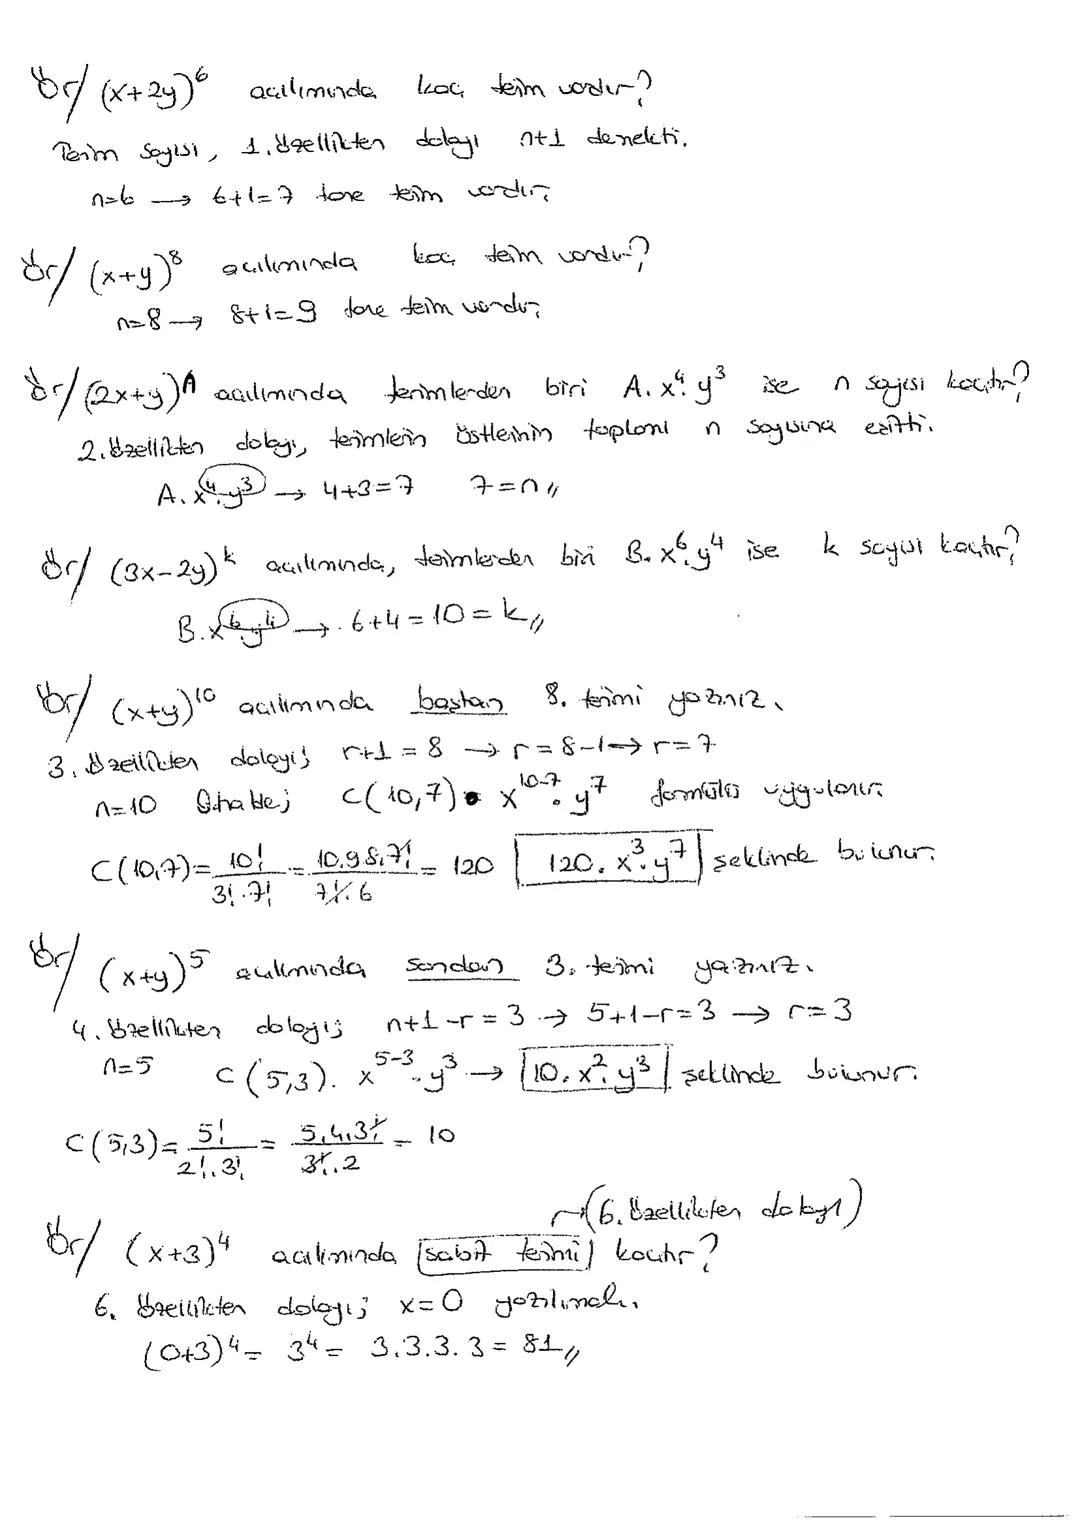 ör/ (x+2y)⁶ açılımında kaç terim vardır?
Terim sayısı, 1. özellikten dolayı n+1 demekti.
n=6 → 6+1=7 tane terim vardır.
ör/ (x+y)⁸ açılımında kaç terim vardır?
n=8 → 8+1=9 tane terim vardır.
ör/ (2x+y)ⁿ açılımında terimlerden biri A.x⁴.y³ ise n sayısı kaçtır?
2. özellikten dolayı, terimlerin üstlerinin toplamı n sayısına eşitti.
A.x⁴.y³ → 4+3=7 7=n //
ör/ (3x-2y)ᵏ açılımında, terimlerden biri B.x⁶.y⁴ ise k sayısı kaçtır?
B.x⁶.y⁴ → 6+4=10=k //
ör/ (x+y)¹⁰ açılımında baştan 8. terimi yazınız.
3. özellikten dolayı; r+1=8 → r=8-1 → r=7
n=10 C(10,7) . x¹⁰⁻⁷ . y⁷ formülü uygulanır.
C(10,7) = 10!/3!.7! = 10.9.8.7!/7!.6 = 120 120.x³.y⁷ şeklinde bulunur.
ör/ (x+y)⁵ açılımında sondan 3. terimi yazınız.
4. özellikten dolayı; n+1-r=3 → 5+1-r=3 → r=3
n=5 C(5,3). x⁵⁻³.y³ → 10.x².y³ şeklinde bulunur.
C(5,3) = 5!/2!.3! = 5.4.3!/3!.2 = 10
→(6. özellikten dolayı)
ör/ (x+3)⁴ açılımında sabit terimi kaçtır?
6. özellikten dolayı; x=0 yazılmalı.
(0+3)⁴ = 3⁴ = 3.3.3.3 = 81 //